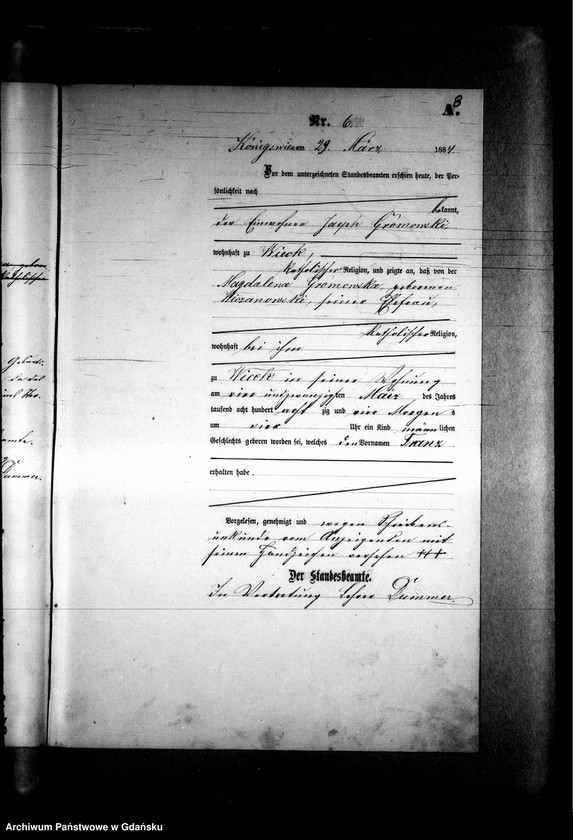 8
A.
Nr. 6.
Königswiese am 29. März 1884.
Vor dem unterzeichneten Standesbeamten erschien heute, der Per-
sönlichkeit nach
bekannt,
der Einwohner Joseph Gromowski
wohnhaft zu Wieck,
katholischer Religion, und zeigte an, daß von der
Magdalena Gromowska, geborenen
seiner Ehefrau,
katholischer Religion,
wohnhaft bei ihm
zu Wieck in seiner Wohnung
am vier und zwanzigsten März des Jahres
tausend acht hundert acht zig und vier Morgens
um vier Uhr ein Kind männlichen
Geschlechts geboren worden sei, welches den Vornamen Franz
erhalten habe.
Vorgelesen, genehmigt und wegen Schreibens-
unkunde vom Anzeigenden mit
seinem Handzeichen versehen +++
Der Standesbeamte.
In Vertretung Lehrer Dummer.
Archiwum Państwowe w Gdańsku